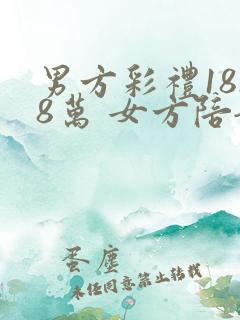 男方彩禮18.
8萬 女方陪
蛋塵
未經同意禁止轉載